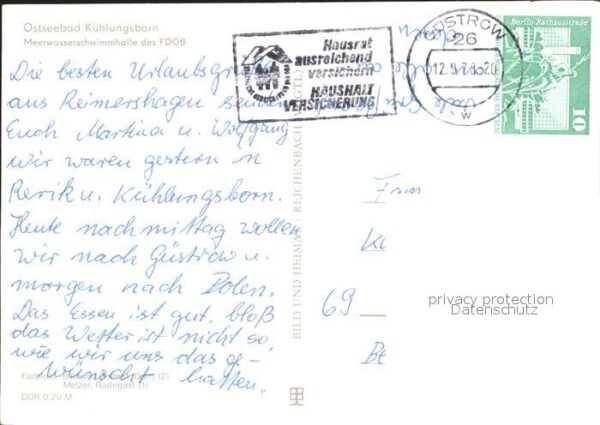 Ostseebad Kühlungsborn
Meerwasserschwimmhalle des FDGB
Die besten Urlaubsgrüße
aus Reimershagen senden
Euch Martina u. Wolfgang
wir waren gestern in
Rerik u. Kühlungsborn.
Heute nachmittag wollen
wir nach Güstrow u.
morgen nach Polen.
Das Essen ist gut, bloß
das Wetter ist nicht so
wie wir uns das ge-
wünscht hatten.
Melzer, Radegast (1)
DDR 0,20 M
BILD UND HEIMAT REICHENBACH
Hausrat
ausreichend
versichern
HAUSHALT
VERSICHERUNG
GÜSTROW
26
w
Berlin-Rathausstraße
10
Fam
Kl
69
Be
privacy protection
Datenschutz